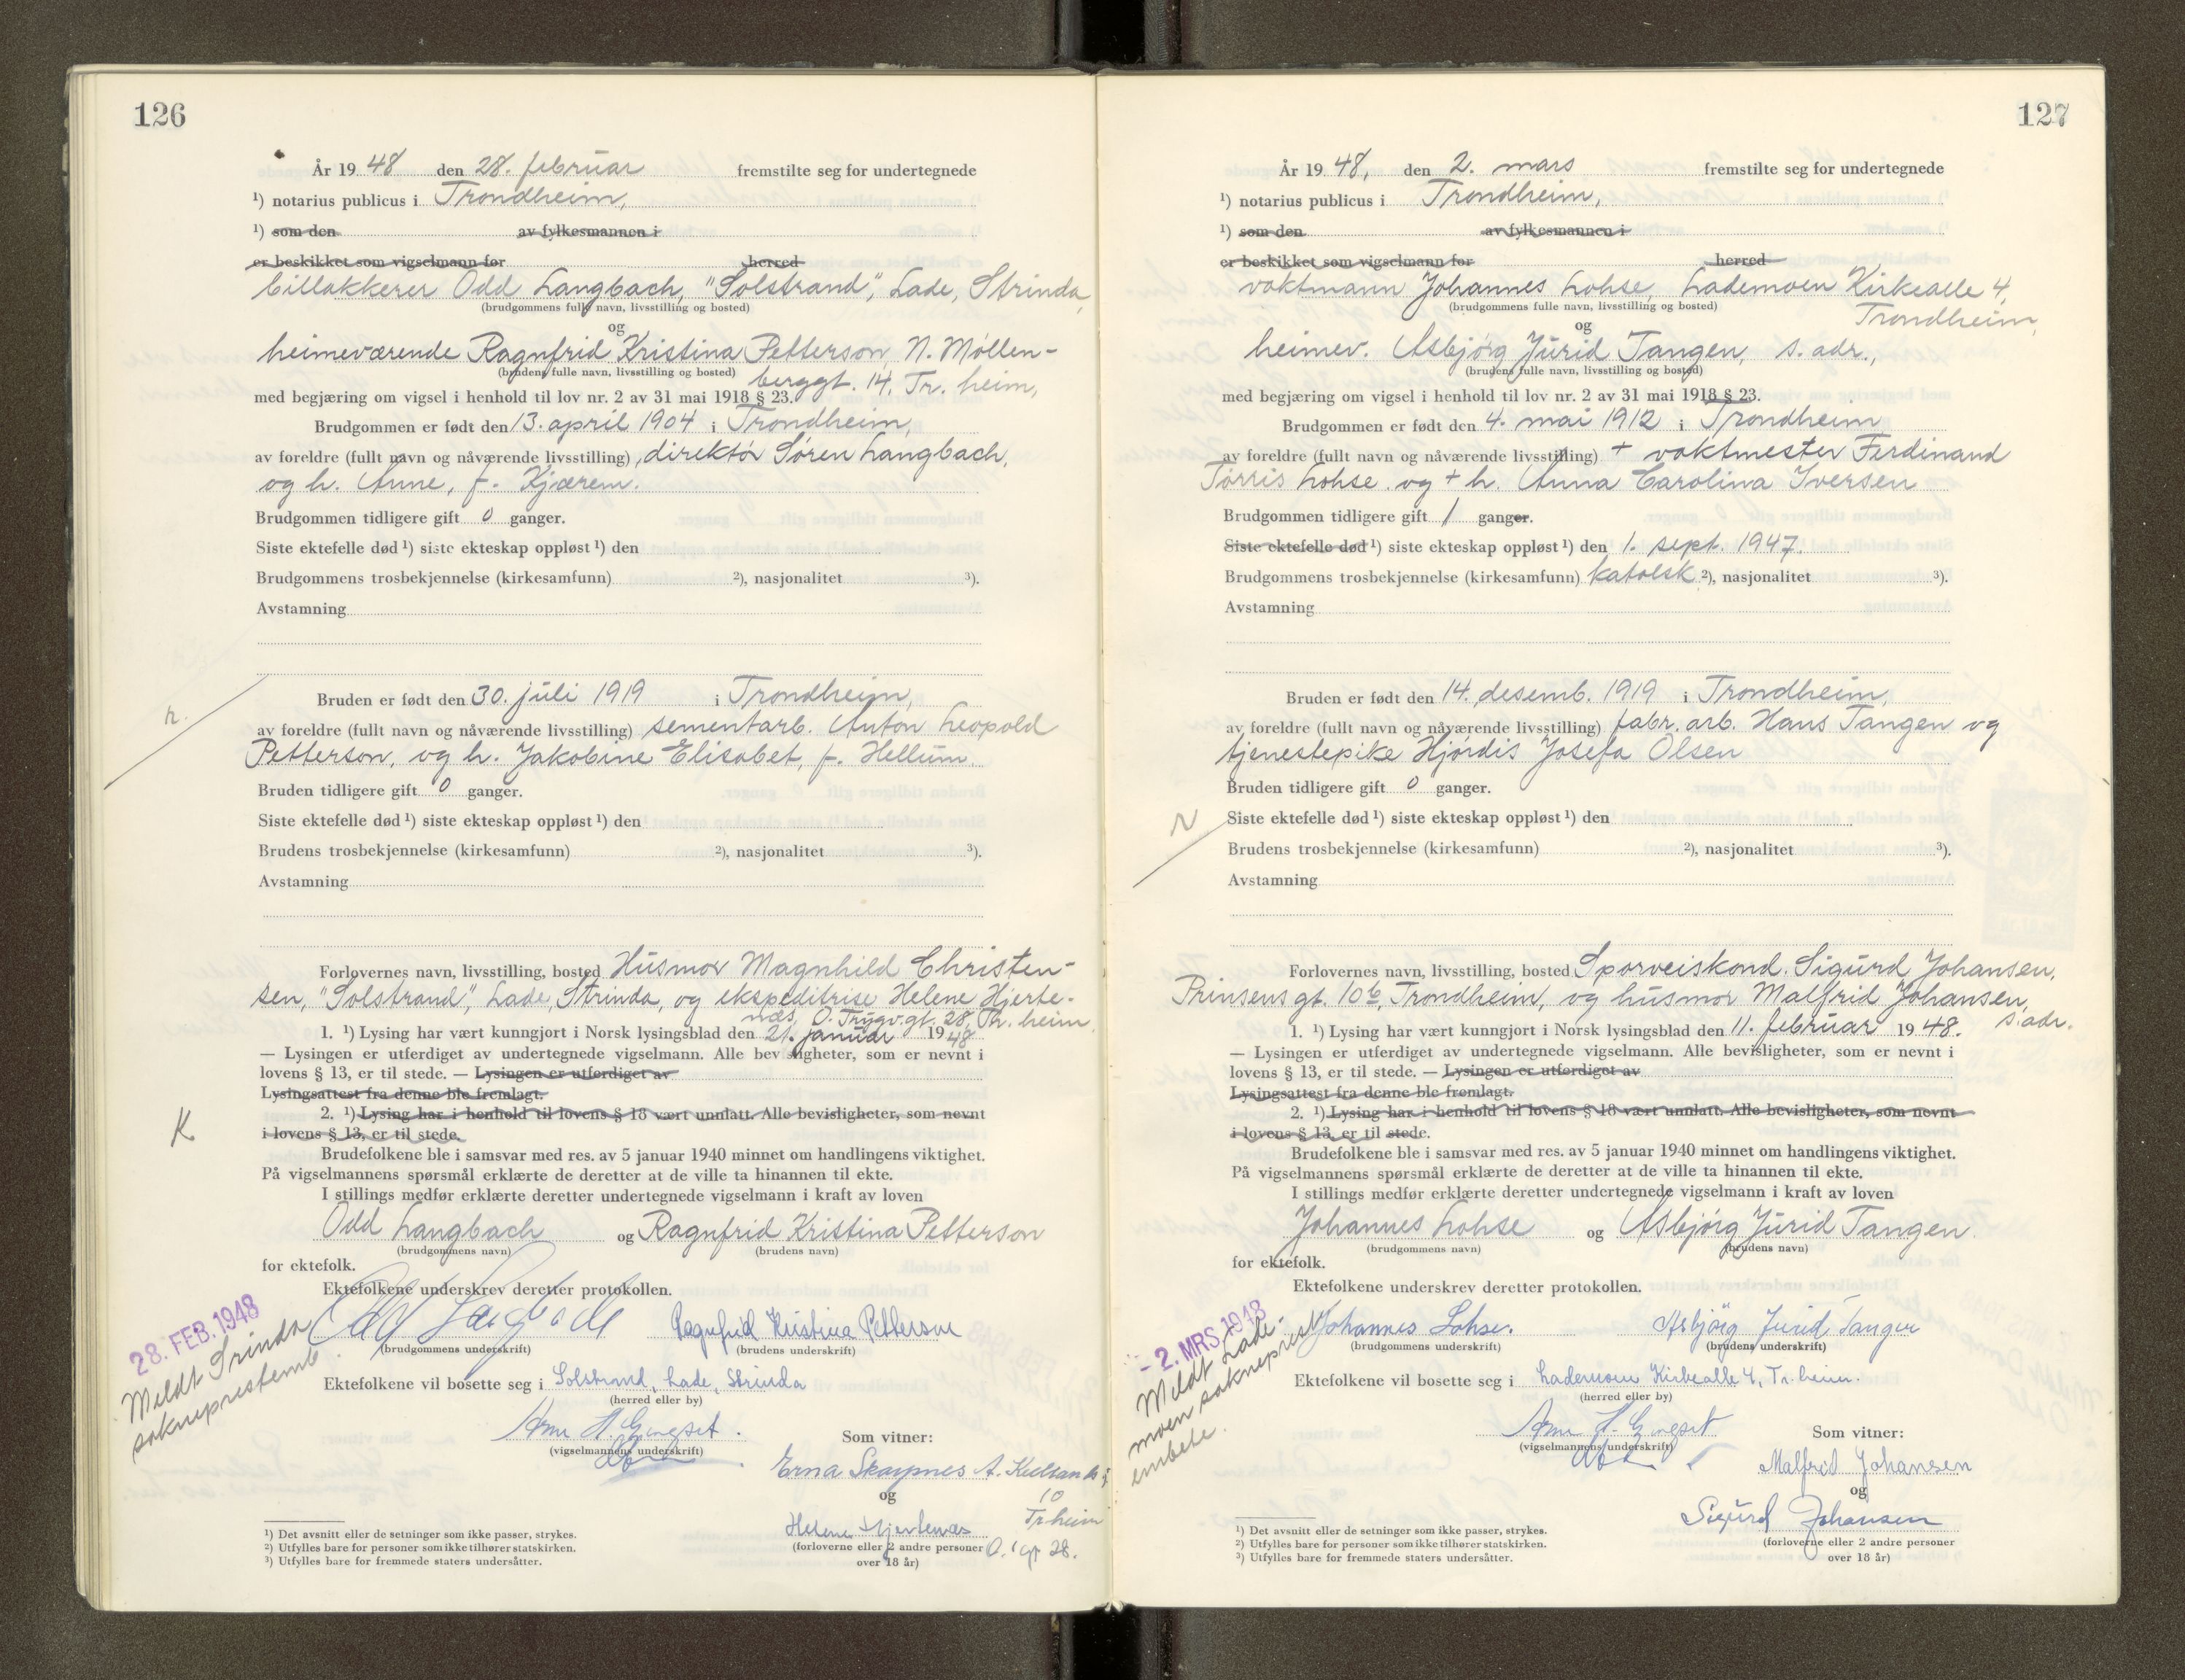 126
År 19 48 den 28. februar fremstilte seg for undertegnede
¹) notarius publicus i Trondheim,
¹) som den av fylkesmannen i
er beskikket som vigselmann for herred
billakkerer Odd Langbach, "Solstrand", Lade, Strinda,
(brudgommens fulle navn, livsstilling og bosted)
og
heimeværende Ragnfrid Kristina Petterson, N. Møllen-
(brudens fulle navn, livsstilling og bosted) berggt. 14, Tr. heim,
med begjæring om vigsel i henhold til lov nr. 2 av 31 mai 1918 § 23.
Brudgommen er født den 13. april 1904 i Trondheim,
av foreldre (fullt navn og nåværende livsstilling), direktør Søren Langbach,
og h. Anne, f. Kjærem.
Brudgommen tidligere gift 0 ganger.
Siste ektefelle død ¹) siste ekteskap oppløst ¹) den
Brudgommens trosbekjennelse (kirkesamfunn) ²), nasjonalitet ³).
Avstamning
n.
Bruden er født den 30. juli 1919 i Trondheim,
av foreldre (fullt navn og nåværende livsstilling) sementarb. Anton Leopold
Petterson, og h. Jakobine Elisabet, f. Hellum.
Bruden tidligere gift 0 ganger.
Siste ektefelle død ¹) siste ekteskap oppløst ¹) den
Brudens trosbekjennelse (kirkesamfunn) ²), nasjonalitet ³).
Avstamning
Forlovernes navn, livsstilling, bosted Husmor Magnhild Christen-
sen, "Solstrand", Lade, Strinda, og ekspeditrise Helene Hjerte-
næs, O. Trygv.gt. 28, Tr. heim.
1. ¹) Lysing har vært kunngjort i Norsk lysingsblad den 21. januar 19 48
— Lysingen er utferdiget av undertegnede vigselmann. Alle bevisligheter, som er nevnt i
lovens § 13, er til stede. — Lysingen er utferdiget av
Lysingsattest fra denne ble fremlagt.
2. ¹) Lysing har i henhold til lovens § 18 vært unnlatt. Alle bevisligheter, som nevnt
i lovens § 13, er til stede.
K
Brudefolkene ble i samsvar med res. av 5 januar 1940 minnet om handlingens viktighet.
På vigselmannens spørsmål erklærte de deretter at de ville ta hinannen til ekte.
I stillings medfør erklærte deretter undertegnede vigselmann i kraft av loven
Odd Langbach og Ragnfrid Kristina Petterson
(brudgommens navn) (brudens navn)
for ektefolk.
Ektefolkene underskrev deretter protokollen.
28. FEB. 1948
Meldt Strinda
sokneprestemb.
Odd Langbach Ragnfrid Kristina Petterson
(brudgommens underskrift) (brudens underskrift)
Ektefolkene vil bosette seg i Solstrand, Lade, Strinda
(herred eller by)
(vigselmannens underskrift)
Som vitner:
Erna Skarpnes
og
10
Tr.heim
Helene Hjertenæs
(forloverne eller 2 andre personer
over 18 år)
28.
¹) Det avsnitt eller de setninger som ikke passer, strykes.
²) Utfylles bare for personer som ikke tilhører statskirken.
³) Utfylles bare for fremmede staters undersåtter.
127
År 19 48, den 2. mars fremstilte seg for undertegnede
¹) notarius publicus i Trondheim,
¹) som den av fylkesmannen i
er beskikket som vigselmann for herred
vaktmann Johannes Lohse, Lademoen Kirkealle 4,
Trondheim,
(brudgommens fulle navn, livsstilling og bosted)
og
heimev. Asbjørg Jurid Tangen, s. adr.,
(brudens fulle navn, livsstilling og bosted)
med begjæring om vigsel i henhold til lov nr. 2 av 31 mai 1918 § 23.
Brudgommen er født den 4. mai 1912 i Trondheim
av foreldre (fullt navn og nåværende livsstilling) + vaktmester Ferdinand
Tørris Lohse og + h. Anna Carolina Iversen
Brudgommen tidligere gift 1 ganger.
Siste ektefelle død ¹) siste ekteskap oppløst ¹) den 1. sept. 1947.
Brudgommens trosbekjennelse (kirkesamfunn) katolsk ²), nasjonalitet ³).
Avstamning
Bruden er født den 14. desemb. 1919 i Trondheim,
av foreldre (fullt navn og nåværende livsstilling) fabr. arb. Hans Tangen og
tjenestepike Hjørdis Josefa Olsen
Bruden tidligere gift 0 ganger.
Siste ektefelle død ¹) siste ekteskap oppløst ¹) den
Brudens trosbekjennelse (kirkesamfunn) ²), nasjonalitet ³).
Avstamning
Forlovernes navn, livsstilling, bosted Sporveiskond. Sigurd Johansen,
Prinsensgt. 10b, Trondheim, og husmor Malfrid Johansen,
s. adr.
1. ¹) Lysing har vært kunngjort i Norsk lysingsblad den 11. februar 19 48.
— Lysingen er utferdiget av undertegnede vigselmann. Alle bevisligheter, som er nevnt i
lovens § 13, er til stede. — Lysingen er utferdiget av
Lysingsattest fra denne ble fremlagt.
2. ¹) Lysing har i henhold til lovens § 18 vært unnlatt. Alle bevisligheter, som nevnt
i lovens § 13, er til stede.
Brudefolkene ble i samsvar med res. av 5 januar 1940 minnet om handlingens viktighet.
På vigselmannens spørsmål erklærte de deretter at de ville ta hinannen til ekte.
I stillings medfør erklærte deretter undertegnede vigselmann i kraft av loven
Johannes Lohse og Asbjørg Jurid Tangen.
(brudgommens navn) (brudens navn)
for ektefolk.
Ektefolkene underskrev deretter protokollen.
- 2. MRS. 1948
Meldt Lade-
moen sokneprest-
embete.
Johannes Lohse. Asbjörg Jurid Tangen
(brudgommens underskrift) (brudens underskrift)
Ektefolkene vil bosette seg i Lademoen Kirkealle 4, Tr. heim.
(herred eller by)
(vigselmannens underskrift)
Som vitner:
Malfrid Johansen
og
Sigurd Johansen
(forloverne eller 2 andre personer
over 18 år)
¹) Det avsnitt eller de setninger som ikke passer, strykes.
²) Utfylles bare for personer som ikke tilhører statskirken.
³) Utfylles bare for fremmede staters undersåtter.